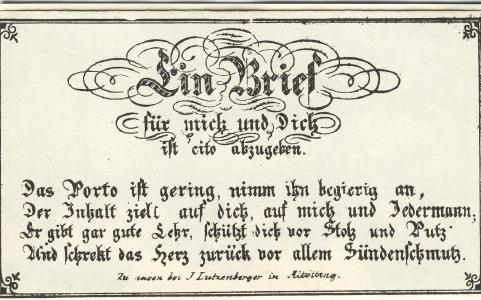 Ein Brief
für mich und Dich
ist cito abzugeben.
Das Porto ist gering, nimm ihn begierig an,
Der Inhalt zielt auf dich, auf mich und Jedermann,
Er gibt gar gute Lehr, schützt dich vor Stolz und Putz
Und schrekt das Herz zurück vor allem Sündenschmutz.
Zu haben bei J Lutzenberger in Altötting.